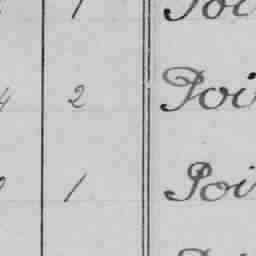 1 Poi
4 2 Poi
1 Poi